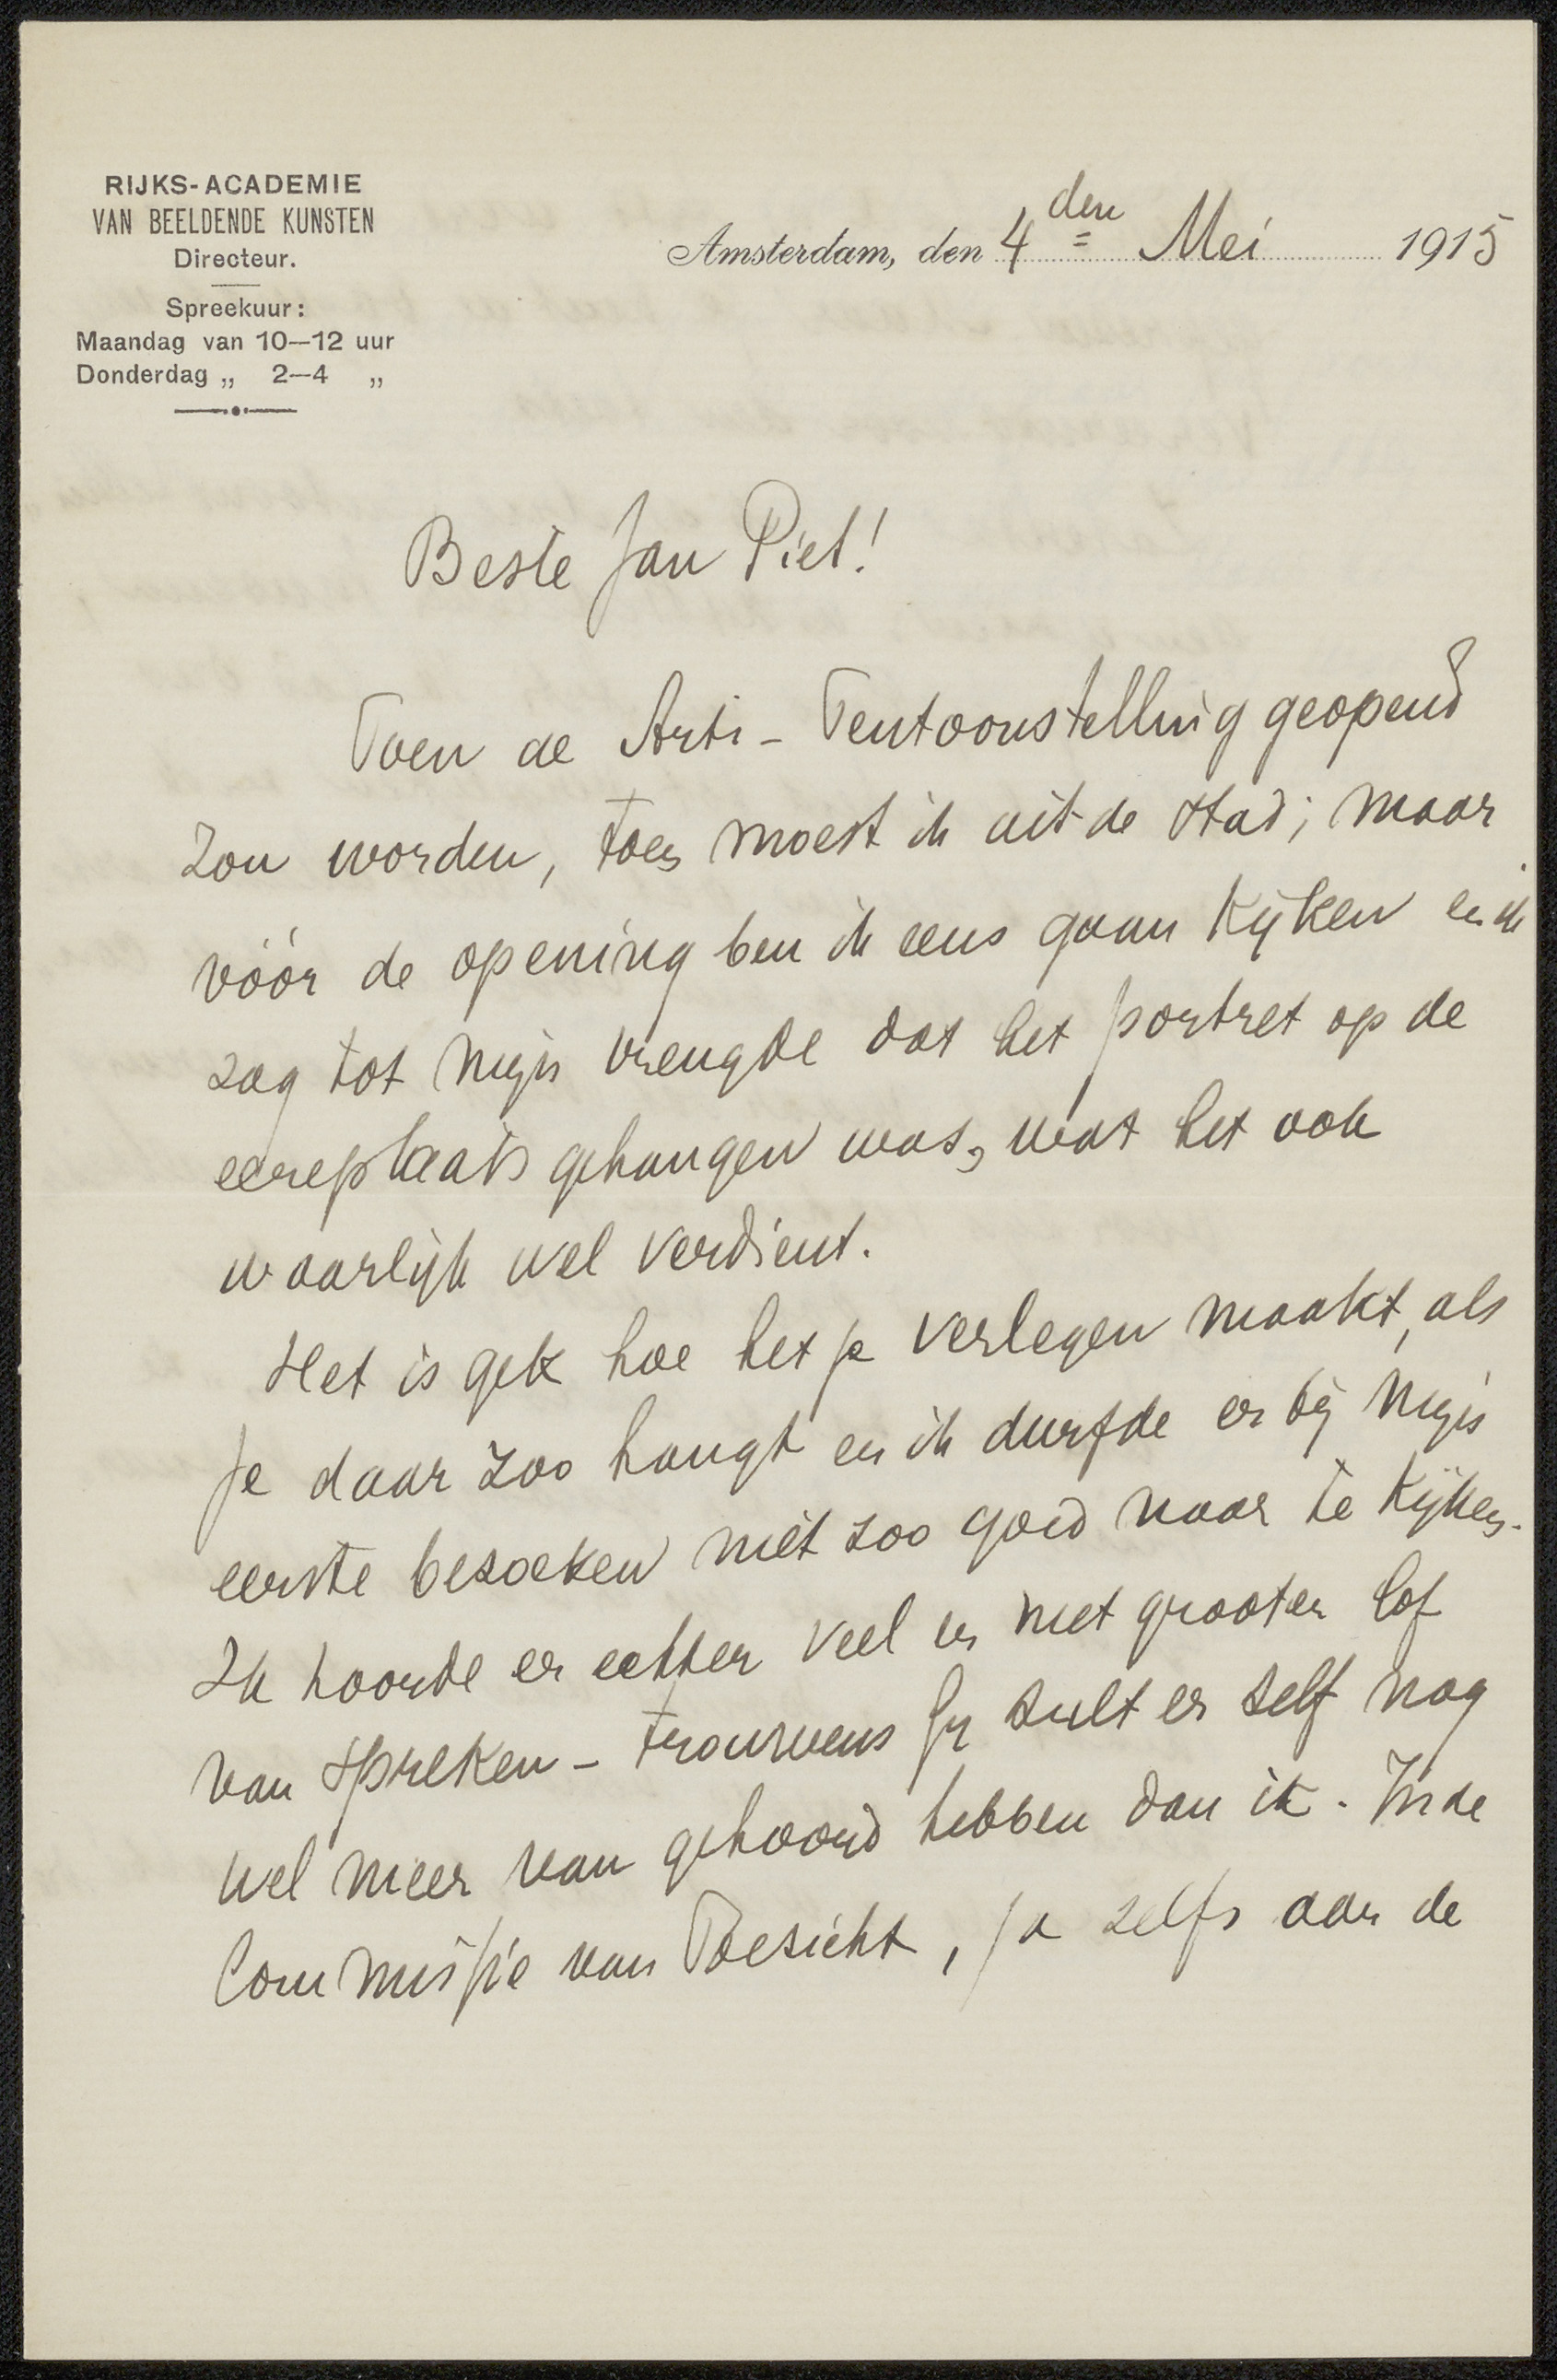 RIJKS-ACADEMIE
VAN BEELDENDE KUNSTEN
Directeur.
Spreekuur:
Maandag van 10—12 uur
Donderdag „ 2—4 „
Amsterdam, den 4den Mei 1915
Beste Jan Piet!
Toen de Arti - Tentoonstelling geopend
zou worden, toen moest ik uit de stad; maar
vóór de opening ben ik eens gaan kijken en ik
zag tot mijn vreugde dat het portret op de
eereplaats gehangen was, wat het ook
waarlijk wel verdient.
Het is gek hoe het je verlegen maakt, als
je daar zoo hangt en ik durfde er bij mijn
eerste bezoeken niet zoo goed naar te kijken.
Ik hoorde er echter veel en met grooten lof
van spreken - trouwens gij zult er zelf nog
wel meer van gehoord hebben dan ik. In de
Commissie van Toezicht, ja zelfs aan de